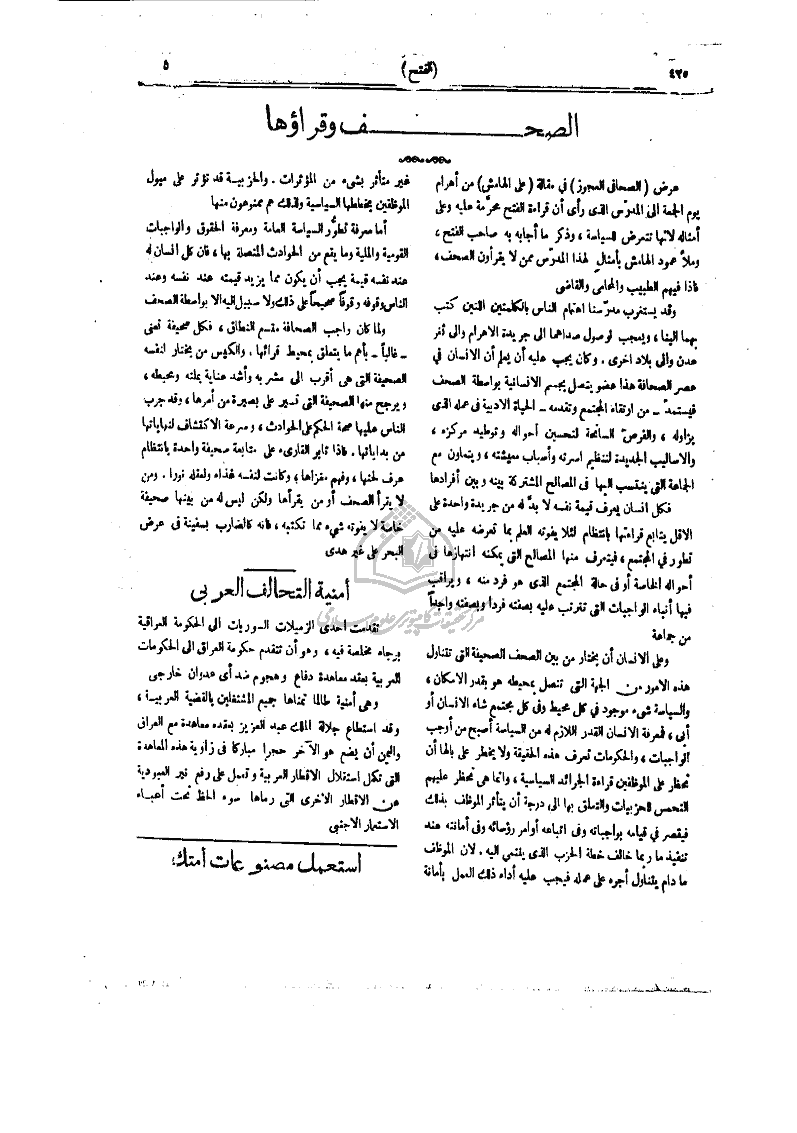 ٤٢٥
(الفتح)
٥
الصحف وقراؤها
عرض (الصحافى العجوز) في مقالة (على الهامش) من أهرام
يوم الجمعة الى المدرّس الذى رأى أن قراءة الفتح محرّمة عليه وعلى
أمثاله لأنها تتعرض للسياسة ، وذكر ما أجابه به صاحب الفتح ،
وملأ عمود الهامش بأمثال لهذا المدرّس ممن لا يقرأون الصحف ،
فاذا فيهم الطبيب والمحامى والقاضى
وقد يستغرب مدرّسنا اهتمام الناس بالكلمتين اللتين كتب
بهما الينا ، ويعجب لوصول صداهما الى جريدة الاهرام والى ثغر
عدن والى بلاد اخرى . وكان يجب عليه أن يعلم أن الانسان في
عصر الصحافة هذا عضو يتصل بجسم الانسانية بواسطة الصحف
فيستمدّ ــ من ارتقاء المجتمع وتقدمه ــ الحياة الادبية فى عمله الذى
يزاوله ، والفرص السانحة لتحسين أحواله وتوطيد مركزه ،
والاساليب الجديدة لتنظيم اسرته وأسباب معيشته ، ويتعاون مع
الجماعة التى ينتسب اليها فى المصالح المشتركة بينه وبين أفرادها
فكل انسان يعرف قيمة نفسه لا بدّ له من جريدة واحدة على
الاقل يتابع قراءتها بانتظام لئلا يفوته العلم بما تعرضه عليه من
تطور فى المجتمع ، فيتعرف منها المصالح التى يمكنه انتهازها فى
أحواله الخاصة أو فى حالة المجتمع الذى هو فرد منه ، ويراقب
فيها أنباء الواجبات التى تترتب عليه بصفته فرداً وبصفته واحداً
من جماعة
وعلى الانسان أن يختار من بين الصحف الصحيفة التى تتناول
هذه الامور من الجهة التى تتصل بمحيطه هو بقدر الامكان ،
والسياسة شىء موجود فى كل محيط وفى كل مجتمع شاء الانسان أو
أبى ، فمعرفة الانسان القدر اللازم له من السياسة أصبح من أوجب
الواجبات ، والحكومات تعرف هذه الحقيقة ولا يخطر على بالها أن
تحظر على الموظفين قراءة الجرائد السياسية ، وانما هى تحظر عليهم
التحمس للحزبيات والتعلق بها الى درجة أن يتأثر الموظف بذلك
فيقصر فى قيامه بواجباته وفى اتباعه أوامر رؤسائه وفى أمانته عند
تنفيذ ما ربما خالف خطة الحزب الذى ينتمى اليه . لان الموظف
ما دام يتناول أجره على عمله فيجب عليه أداء ذلك العمل بأمانة
غير متأثر بشىء من المؤثرات . والحزبية قد تؤثر على ميول
الموظفين بخططها السياسية ولذلك هم ممنوعون منها
أما معرفة تطوُّر السياسة العامة ومعرفة الحقوق والواجبات
القومية والملية وما يقع من الحوادث المتصلة بها ، فان كل انسان له
عند نفسه قيمة يجب أن يكون مما يزيد قيمته عند نفسه وعند
الناس وقوفه وقوفاً صحيحاً على ذلك ولا سبيل اليه الا بواسطة الصحف
ولما كان واجب الصحافة متسع النطاق ، فكل صحيفة تعنى
ــ غالباً ــ بأهم ما يتعلق بمحيط قرائها . والكيس من يختار لنفسه
الصحيفة التى هى أقرب الى مشربه وأشد عناية بملته ومحيطه ،
ويرجح منها الصحيفة التى تسير على بصيرة من أمرها ، وقد جرب
الناس عليها صحة الحكم على الحوادث ، وسرعة الاكتشاف لنهاياتها
من بداياتها . فاذا ثابر القارىء على متابعة صحيفة واحدة بانتظام
عرف لحنها ، وفهم مغزاها ، وكانت لنفسه غذاء ولعقله نورا . ومن
لا يقرأ الصحف أو من يقرأها ولكن ليس له من بينها صحيفة
خاصة لا يفوته شىء مما تكتبه ، فانه كالضارب بسفينة فى عرض
البحر على غير هدى
أمنية التحالف العربى
تقدمت احدى الزميلات السوريات الى الحكومة العراقية
برجاء مخلصة فيه ، وهو أن تتقدم حكومة العراق الى الحكومات
العربية بعقد معاهدة دفاع وهجوم ضد أى عدوان خارجى
وهى أمنية طالما تمناها جميع المشتغلين بالقضية العربية ،
وقد استطاع جلالة الملك عبد العزيز بعقده معاهدة مع العراق
واليمن أن يضع هو الآخر حجرا مباركا فى زاوية هذه المعاهدة
التى تكفل استقلال الاقطار العربية وتعمل على رفع نير العبودية
عن الاقطار الاخرى التى رماها سوء الحظ تحت أعباء
الاستعمار الاجنبى
استعمل مصنوعات أمتك!
مركز تحقيقات كامپيوتری علوم اسلامی